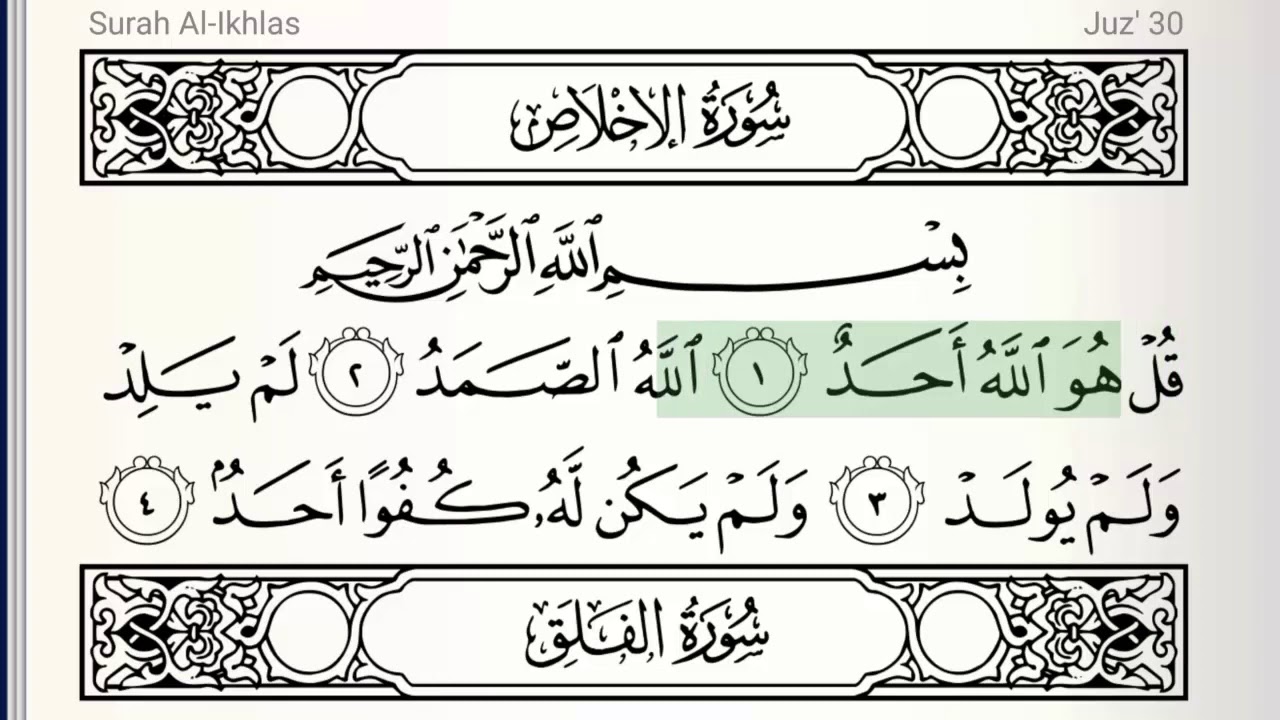 Surah Al-Ikhlas Juz' 30
سُورَةُ الإِخْلَاصِ
بِسْمِ ٱللَّهِ ٱلرَّحْمَٰنِ ٱلرَّحِيمِ
قُلْ هُوَ ٱللَّهُ أَحَدٌ ١ ٱللَّهُ ٱلصَّمَدُ ٢ لَمْ يَلِدْ
وَلَمْ يُولَدْ ٣ وَلَمْ يَكُن لَّهُۥ كُفُوًا أَحَدٌۢ ٤
سُورَةُ الفَلَقِ